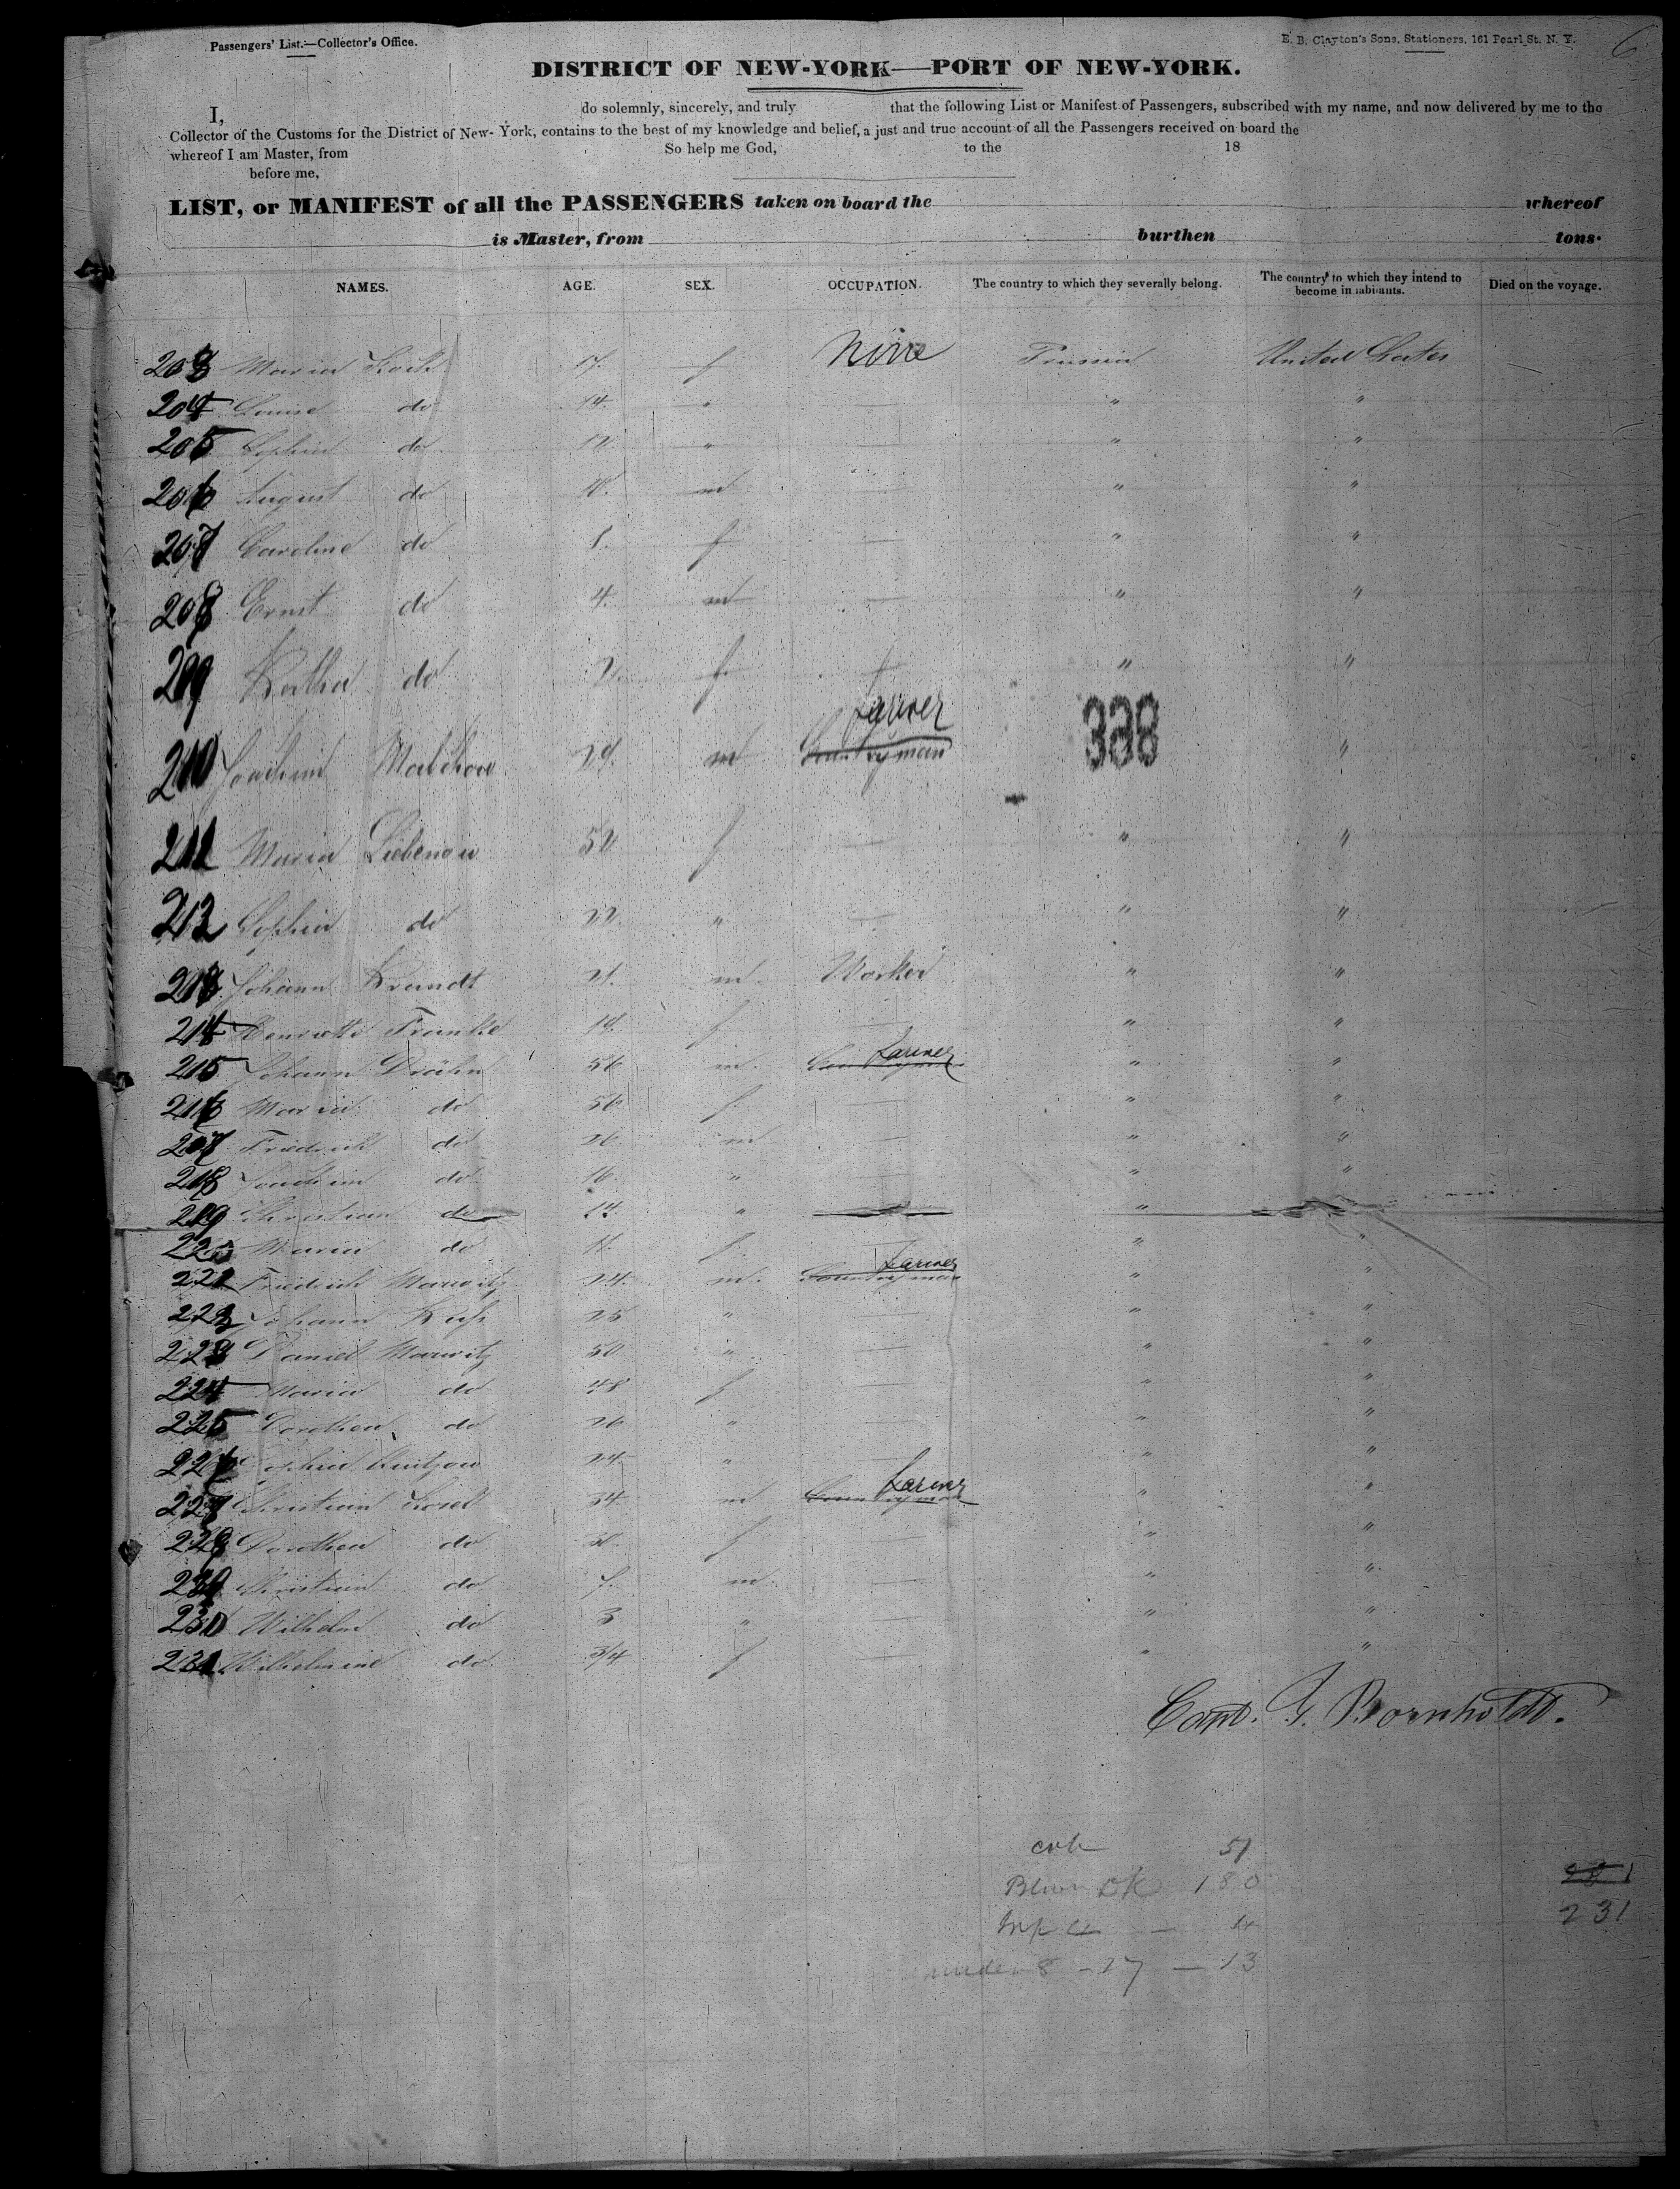 Passengers' List.—Collector's Office.
E. B. Clayton's Sons, Stationers, 161 Pearl St. N. Y.
6
DISTRICT OF NEW-YORK—PORT OF NEW-YORK.
I, do solemnly, sincerely, and truly that the following List or Manifest of Passengers, subscribed with my name, and now delivered by me to the
Collector of the Customs for the District of New-York, contains to the best of my knowledge and belief, a just and true account of all the Passengers received on board the
whereof I am Master, from So help me God, to the 18
before me,
LIST, or MANIFEST of all the PASSENGERS taken on board the whereof
is Master, from burthen tons.
NAMES. AGE. SEX. OCCUPATION. The country to which they severally belong. The country to which they intend to become inhabitants. Died on the voyage.
203 Maria Koch 17. f None Prussia United States
204 Louise do 14. " " "
205 Sophia do 12 " " "
206 August do m — " "
207 Caroline do f — " "
208 Ernst do 4. m — " "
209 Bertha do 2. f " "
210 Joachim 29. m Countryman Farmer "
338
211 Maria Liebenow 52 f — " "
212 Sophia do 22. " — " "
213 Johann Brandt 21. m Worker " "
214 Henriette Franke 19. f — " "
215 Johann Drähn 56 m. Farmer " "
216 Maria do 56 f. — " "
217 Friedrich do 26 m — " "
218 Joachim do 16. " — " "
219 Christian do 14. " — "
220 Maria do 11. f. — " "
221 Friedrich Marwitz 24. m. Countryman Farmer " "
222 Johann 25 " — " "
223 Daniel Marwitz 50 " — " "
224 Maria do 48 f " "
225 Dorothea do 26 " " "
226 Sophia 24 " — " "
227 Christian 34 m Countryman Farmer " "
228 Dorothea do 30. f " "
229 Christian do 7. m — " "
230 Wilhelm do 3 " " "
231 Wilhelmine do 3/4 f " "
Capt. G. Bornholdt.
51
180
231
under 8 - 17 — 13